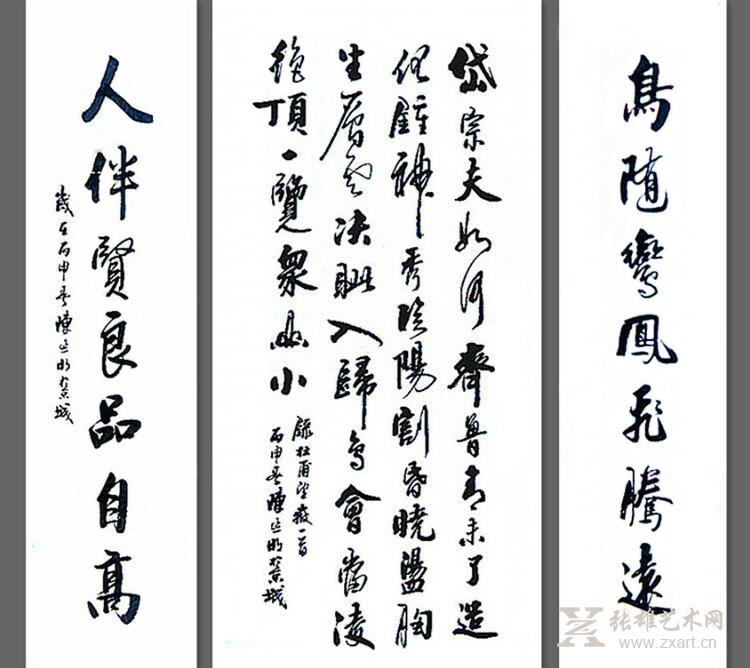 鳥随鸞鳳飛騰遠
岱宗夫如何齊魯青未了造
化鍾神秀陰陽割昏曉盪胸
生層雲決眦入歸鳥會當凌
絕頂一覽衆山小
錄杜甫望嶽一首
丙申春陳延明
人伴賢良品自高
歲在丙申春陳延明
张雄艺术网
www.zxart.cn